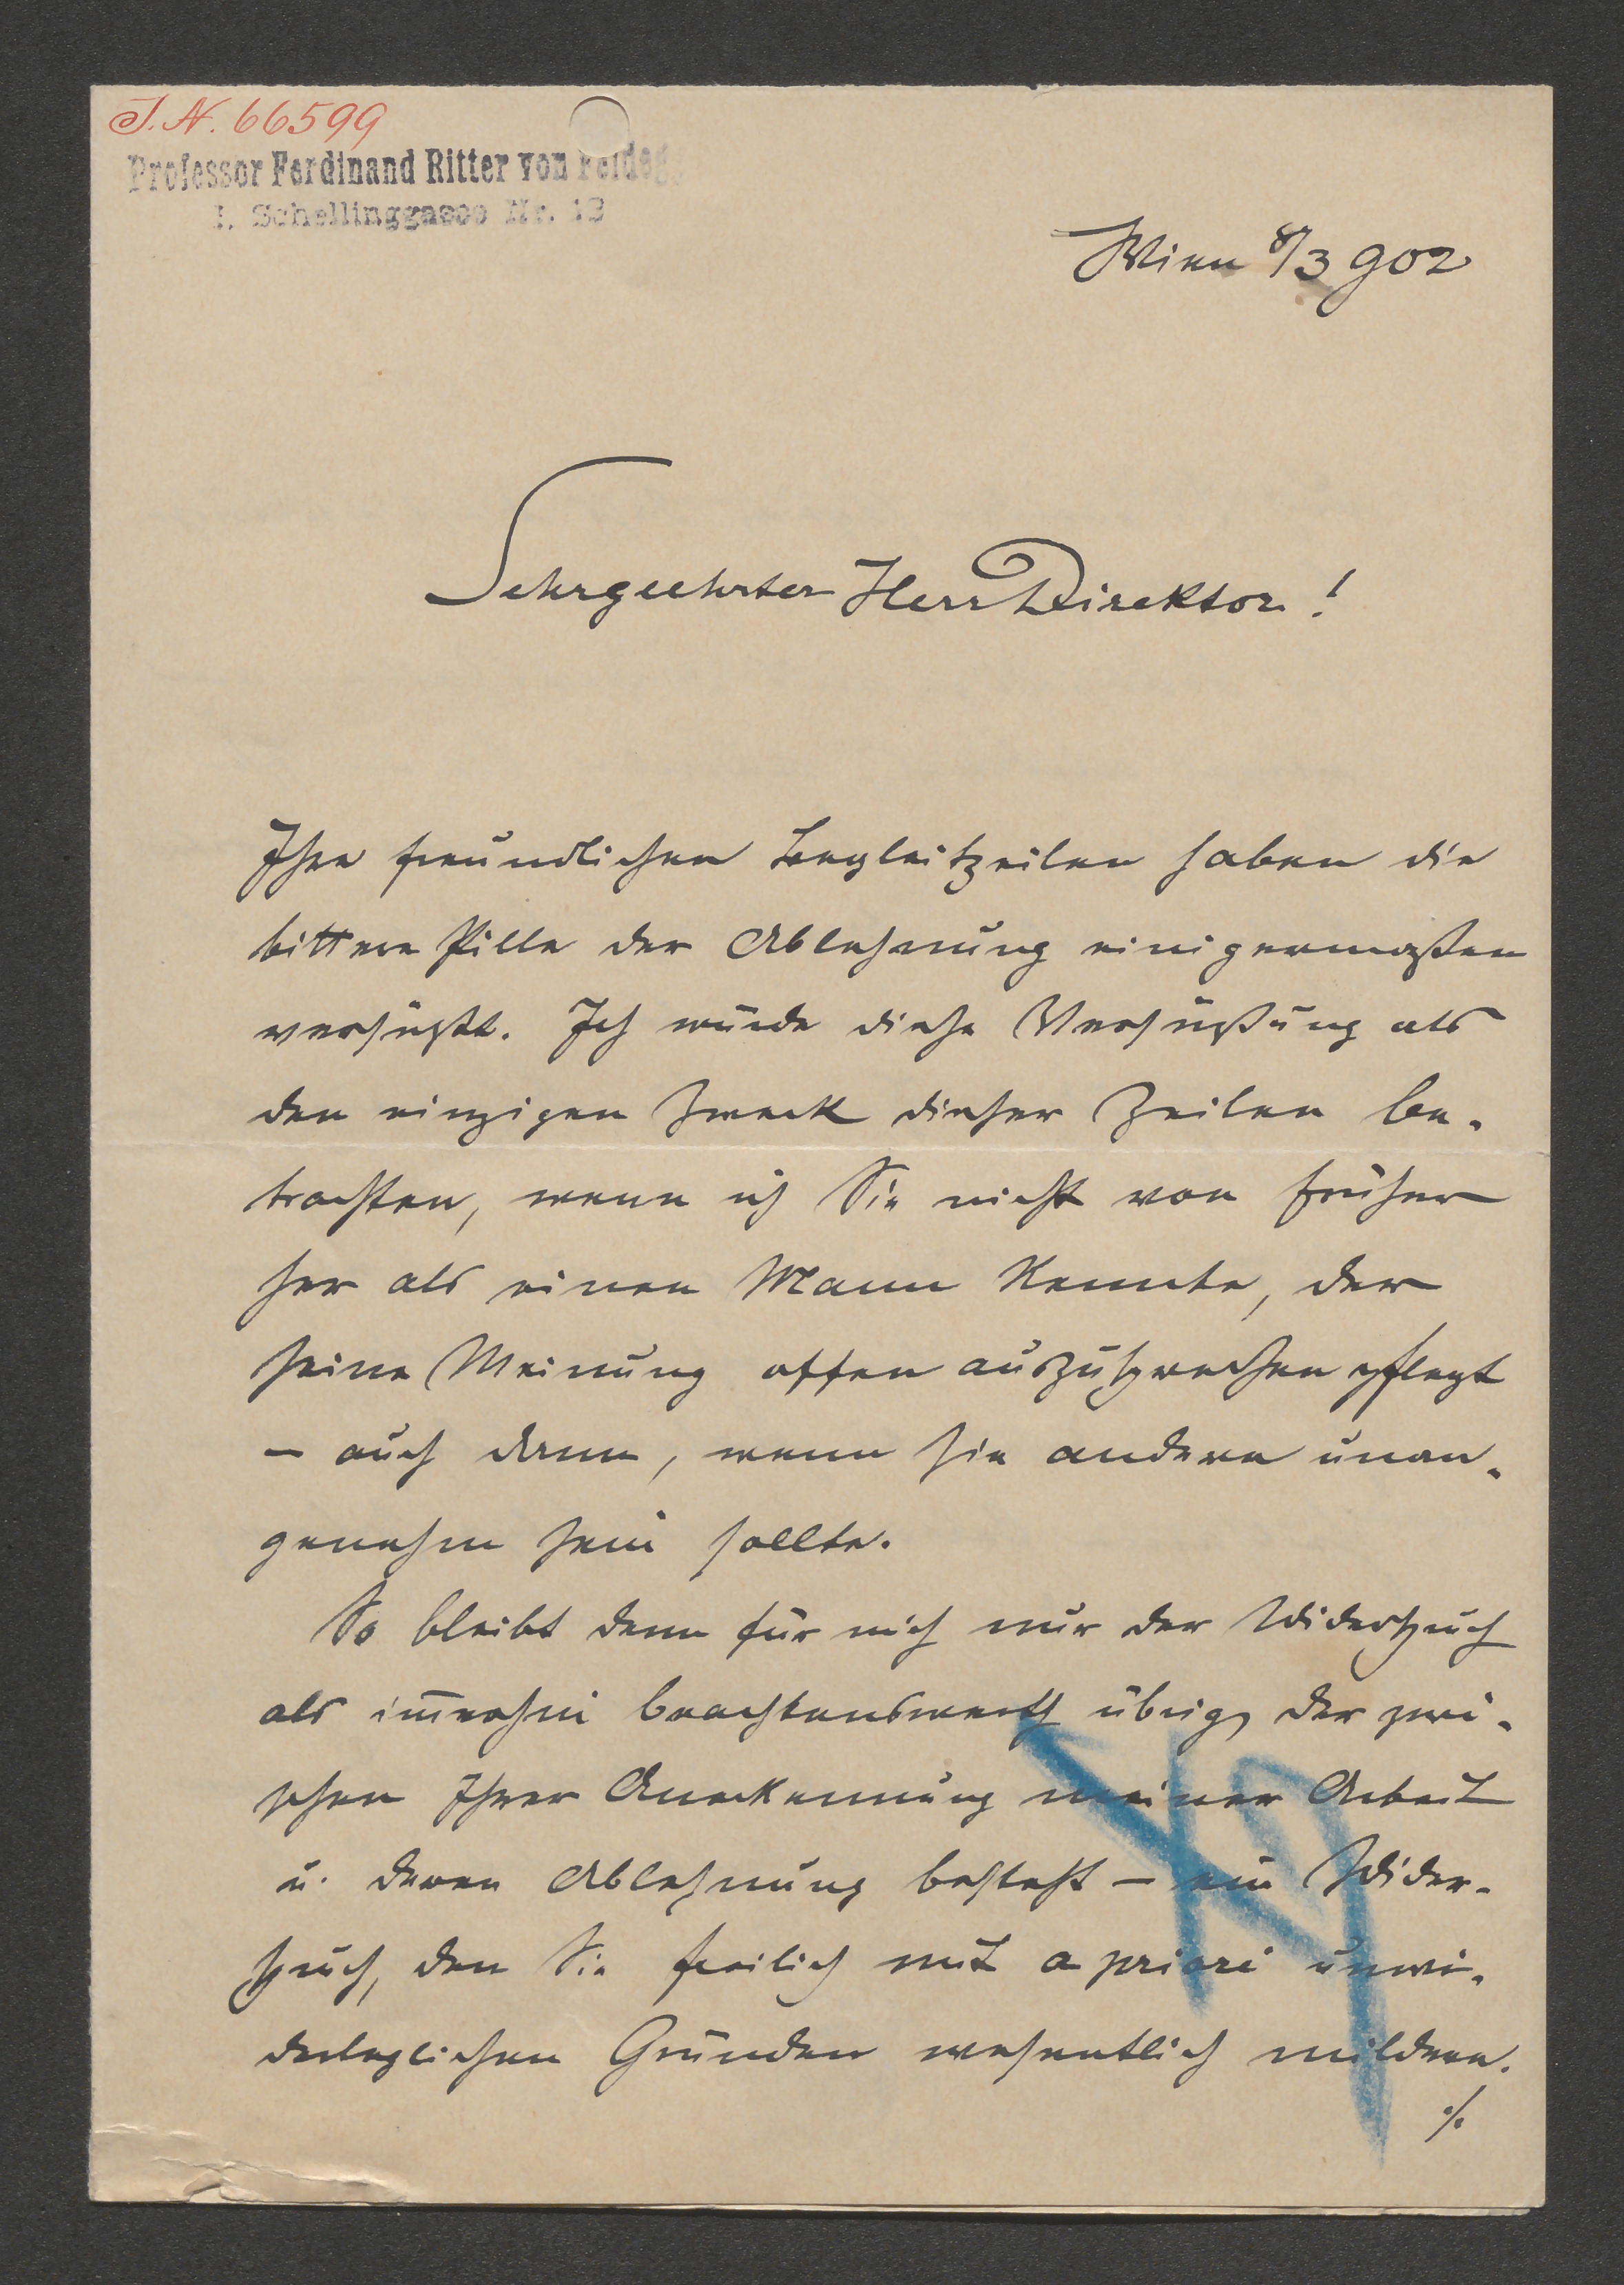 J. N. 66599
Professor Ferdinand Ritter von Feldegg
I. Schellinggasse Nr. 13
Wien 8/3 902
Sehrgeehrter Herr Direktor!
Ihre freundlichen Begleitzeilen haben die
bittere Pille der Ablehnung einigermaßen
versüßt. Ich würde diese Versüßung als
den einzigen Zweck dieser Zeilen be-
trachten, wenn ich Sie nicht von früher
her als einen Mann kennte, der
seine Meinung offen auszusprechen pflegt
– auch dann, wenn sie andern unan-
genehm sein sollte.
So bleibt denn für mich nur der Widerspruch
als im̅erhin beachtenswerth übrig, der zwi-
schen Ihrer Anerkennung meiner Arbeit
u. deren Ablehnung besteht – ein Wider-
spruch, den Sie freilich mit a priori unwi-
derleglichen Gründen wesentlich mildern.
./.